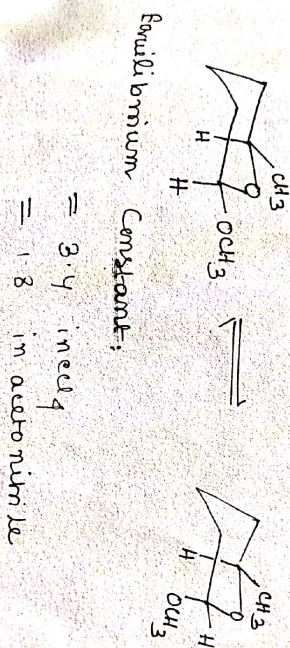 CH3
O
H
OCH3
H
CH3
O
H
H
OCH3
Equilibrium Constant:
= 3.4 in ccl4
= 1.8 in acetonitrile